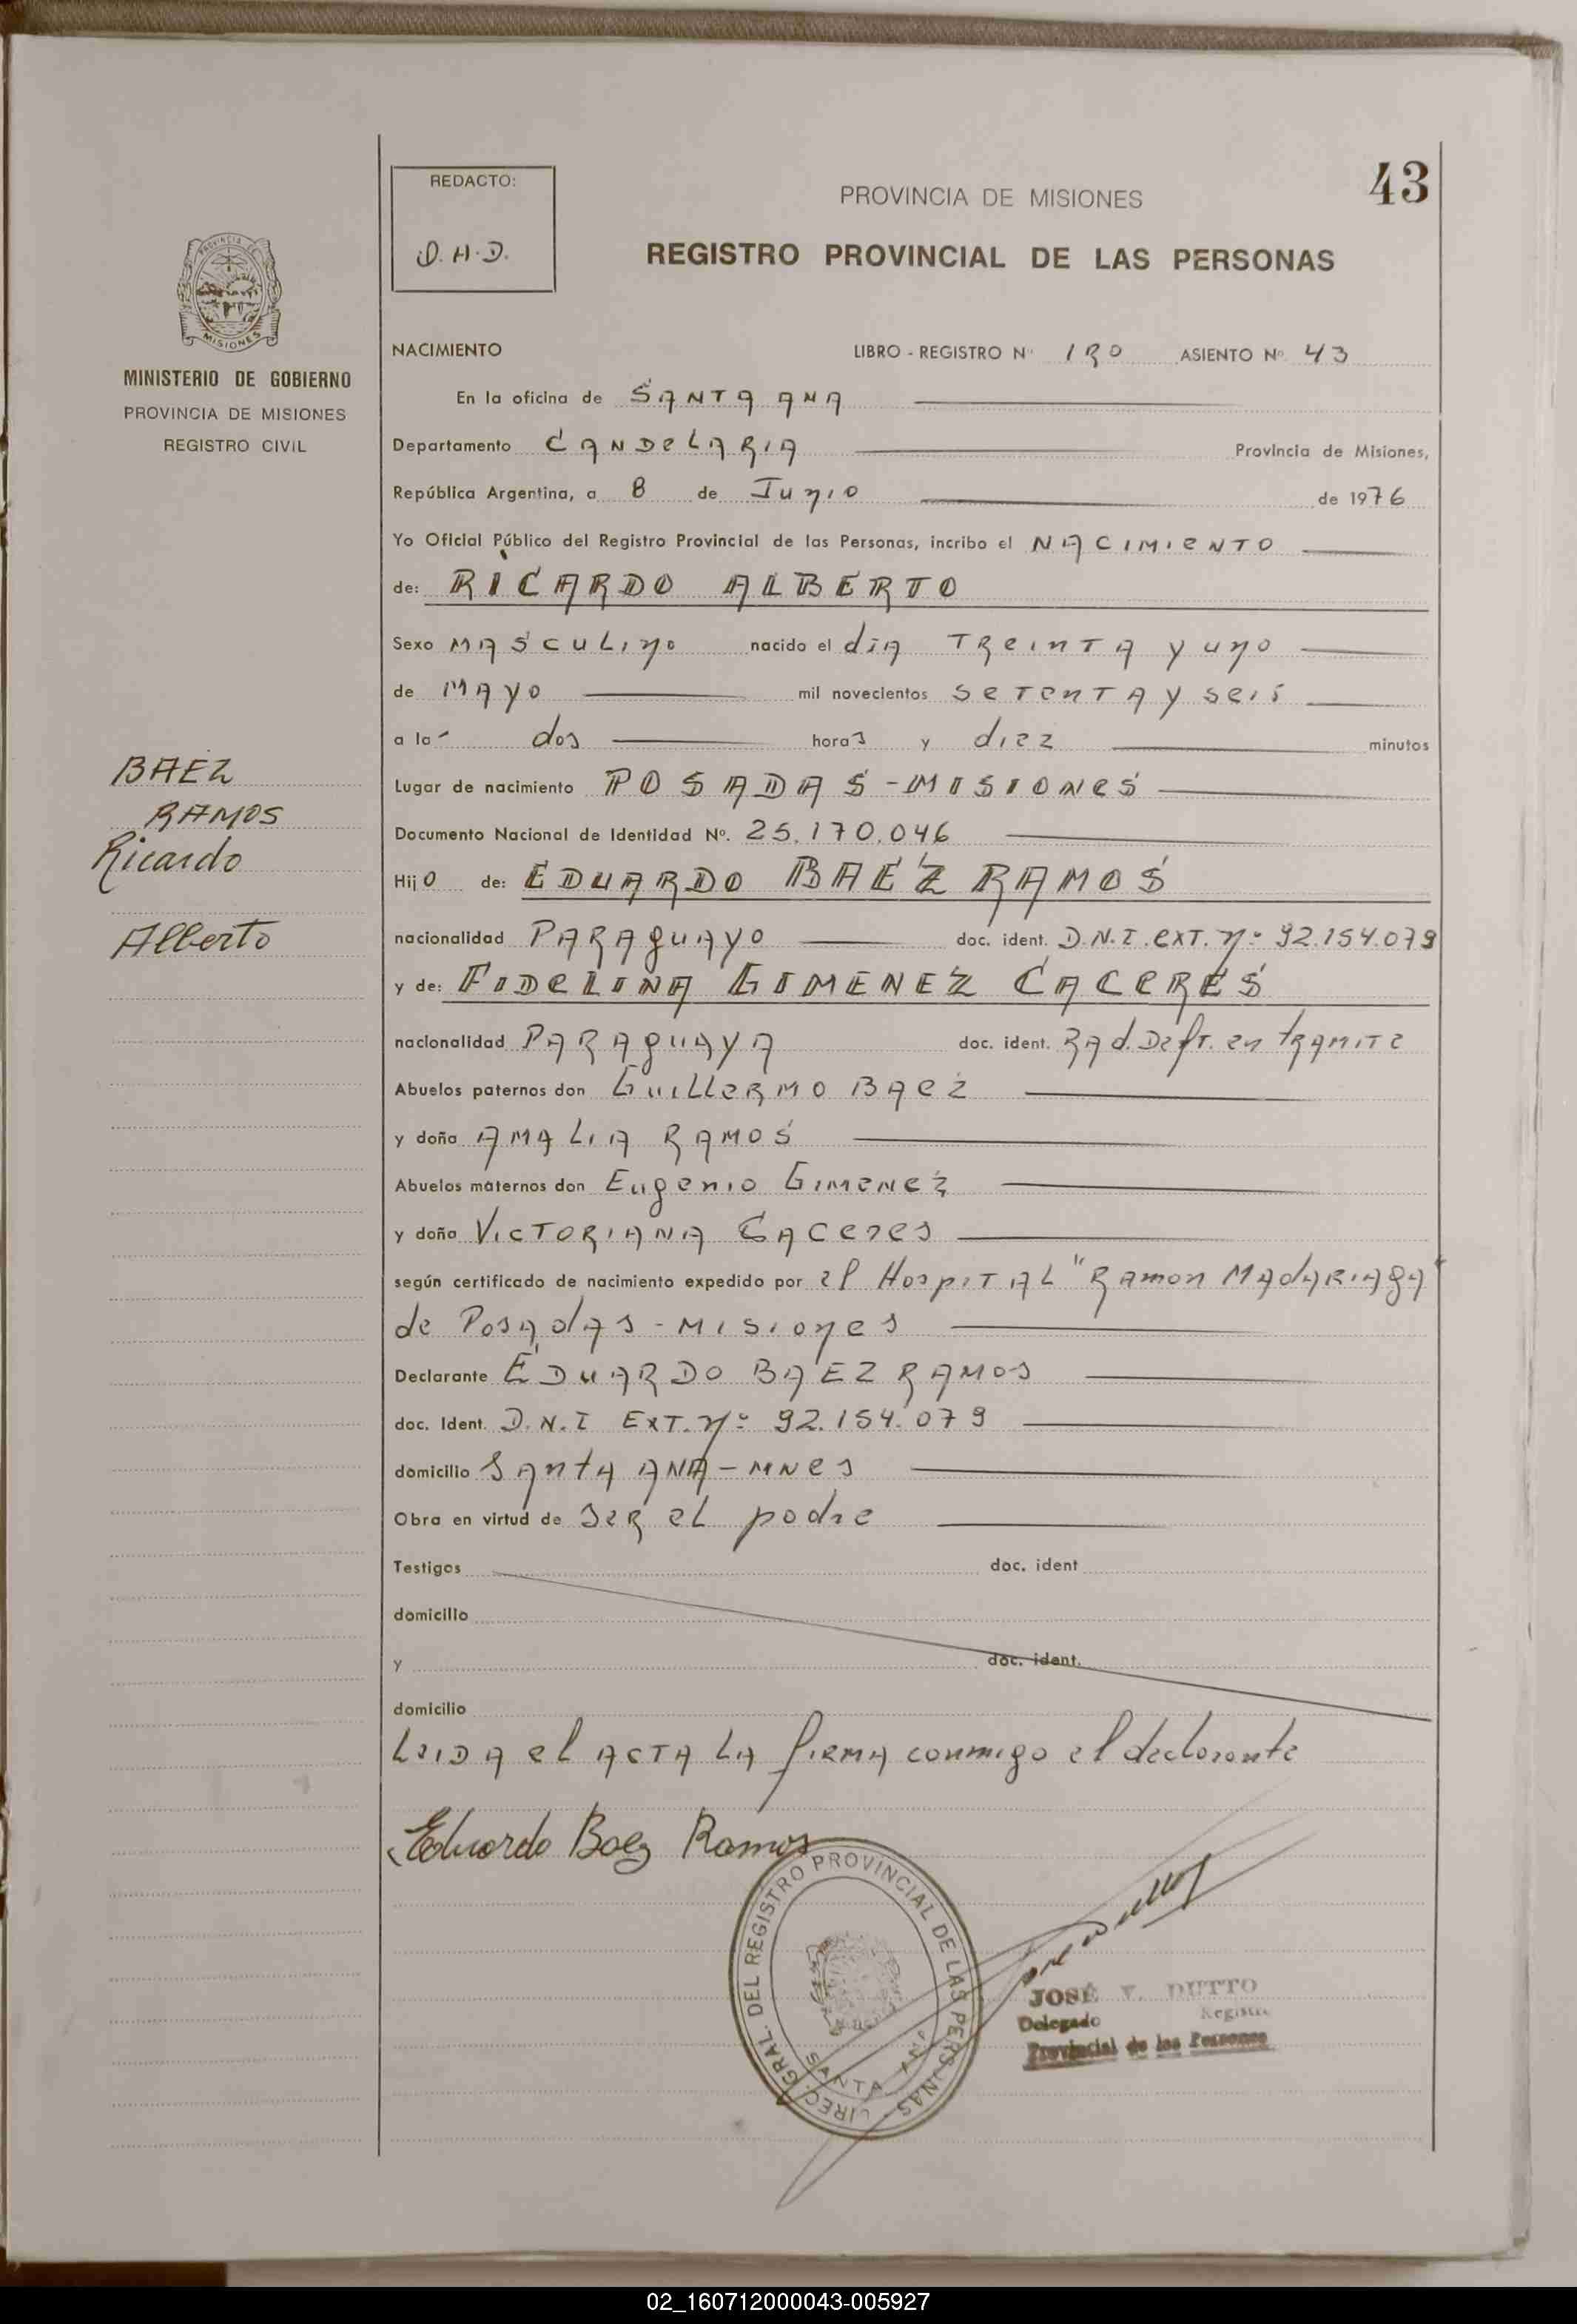 43
REDACTO:
D. H. D.
PROVINCIA DE MISIONES
REGISTRO PROVINCIAL DE LAS PERSONAS
PROVINCIA DE
MISIONES
MINISTERIO DE GOBIERNO
PROVINCIA DE MISIONES
REGISTRO CIVIL
NACIMIENTO LIBRO - REGISTRO Nº 1RO ASIENTO Nº 43
En la oficina de SANTA ANA
Departamento CANDELARIA Provincia de Misiones,
República Argentina, a 8 de Junio de 1976
Yo Oficial Público del Registro Provincial de las Personas, incribo el NACIMIENTO
de: RICARDO ALBERTO
Sexo MASCULINO nacido el día TREINTA y uno
de MAYO mil novecientos SETENTA y seis
a las dos horas y diez minutos
Lugar de nacimiento POSADAS - MISIONES
Documento Nacional de Identidad Nº. 25.170.046
Hijo de: EDUARDO BAEZ RAMOS
nacionalidad PARAguAYO doc. ident. D.N.I. EXT. Nº 92.154.079
y de: FIDELINA GIMENEZ CACERES
nacionalidad PARAguAYA doc. ident. RAd. Deft. en trAMITE
Abuelos paternos don GuiLLERMO BAEZ
y doña AMALIA RAMOS
Abuelos maternos don Eugenio GIMENEZ
y doña VICTORIANA CACERES
según certificado de nacimiento expedido por el HospITAL "RAmon MAdARIAgA"
de Posadas - Misiones
Declarante EDUARDO BAEZ RAMOS
doc. Ident. D.N.I EXT. Nº 92.154.079
domicilio SAntA ANA - MNES
Obra en virtud de SER EL padre
Testigos doc. ident
domicilio
y doc. ident.
domicilio
LeIDA el ACTA LA firMA conmigo el declarante
Eduardo Baez Ramos
BAEZ
RAMOS
Ricardo
Alberto
DIREC. GRAL. DEL REGISTRO PROVINCIAL DE LAS PERSONAS
SANTA ANA
JOSÉ V. DUTTO
Delegado Registro
Provincial de las Personas
02_160712000043-005927